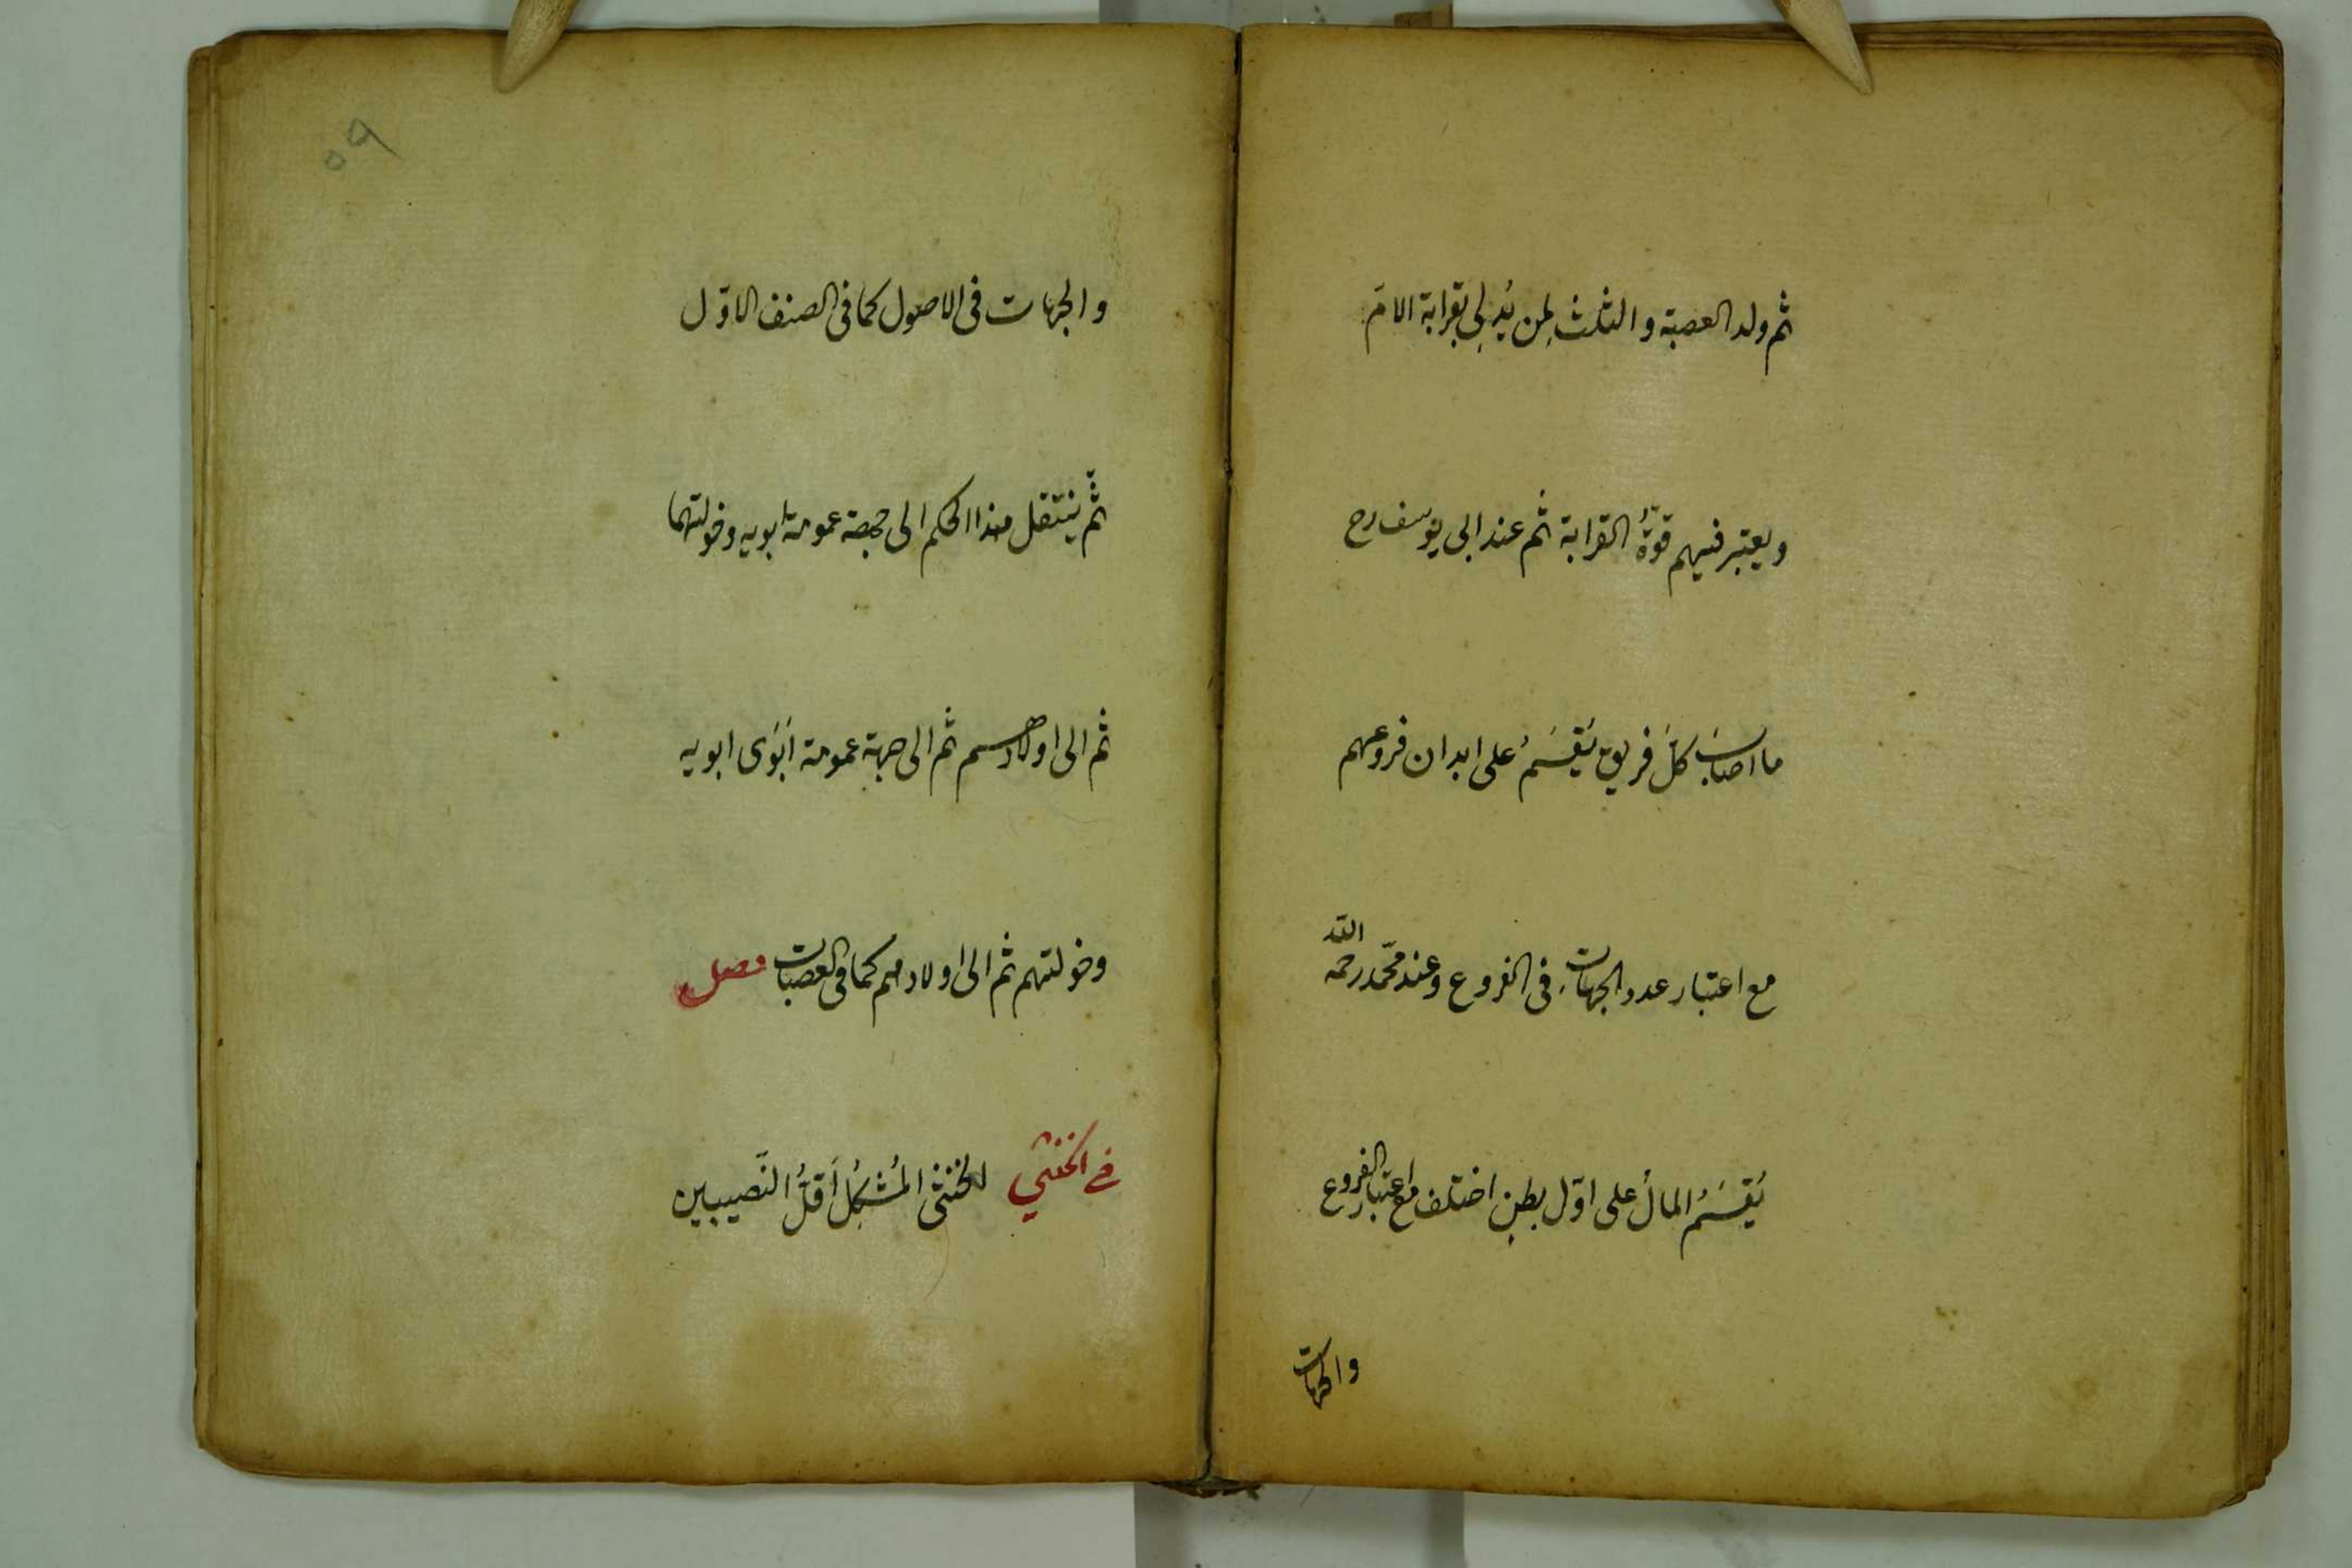 ثم ولد العصبة و الثلث لِمن يُدلِی بقرابة الامّ
و یعتبر فیهم قوّةُ القرابة ثم عند ابی یوسف رح
ما اصابَ کلّ فریق یُقسَمُ علی ابدان فروعهم
مع اعتبار عدد الجهات فی الفروع وعند محمّد رحمه الله
یُقسَمُ المالُ علی اوّل بطنٍ اختلف مع اعتبار الفروع
والجهات
و الجهات فی الاصول کما فی الصنف الاوّل
ثمّ ینتقل هذا الحکم الی جهة عمومة ابویه وخولتهما
ثم الی اولادهم ثم الی جهة عمومة ابَوَی ابویه
وخولتهم ثم الی اولادهم کما فی العصبات فصل
فی الخنثی للخنثی المُشکِلُ اَقلُّ النَّصیبین
٥٩